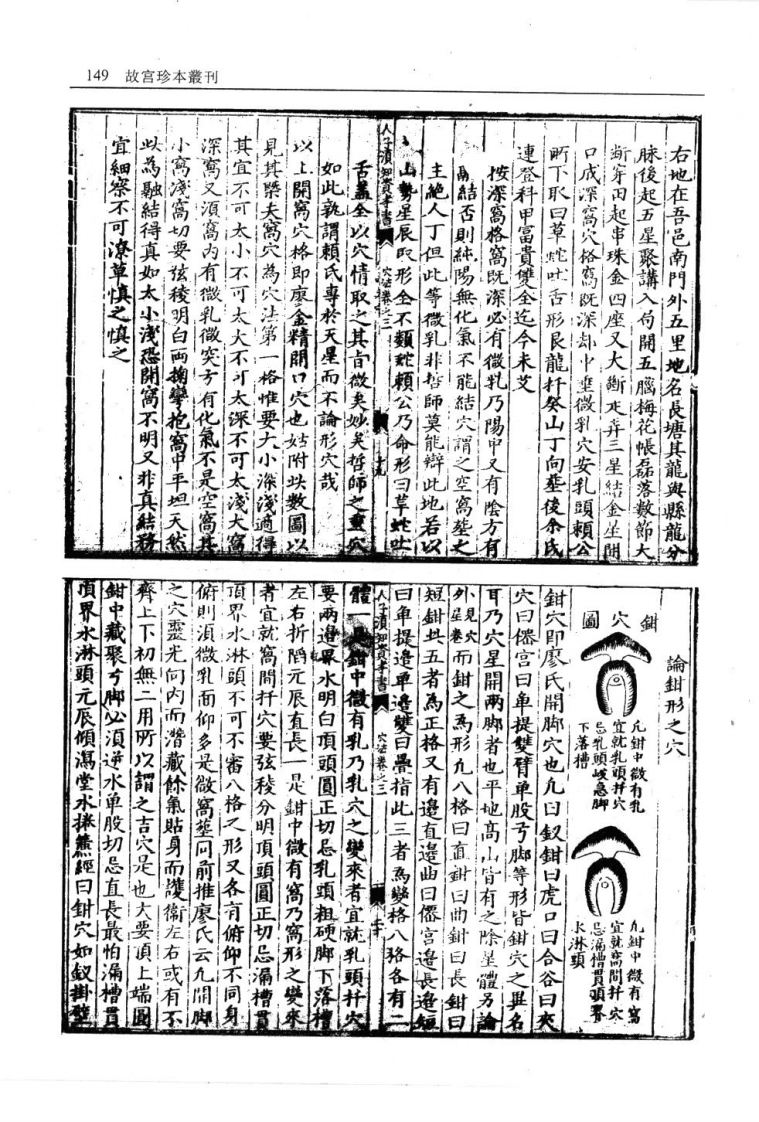 149 故宮珍本叢刊
右地在吾邑南門外五里地名長塘其龍與縣龍分
脉後起五星聚講入局開五腦梅花帳磊落数節大
斷穿田起串珠金四座又大斷走弄三星結金星開
口成深窩穴格窩既深却中垂微乳穴安乳頭頼公
所下取曰草蛇吐舌形艮龍扦癸山丁向塟後余氏
連登科甲富貴雙全迄今未艾
按深窩格窩既深必有微乳乃陽中又有陰方有
結否則純陽無化氣不能結穴謂之空窩塟之
主絶人丁但此等微乳非哲師莫能辯此地若以
山勢星辰取形全不類蛇頼公乃命形曰草蛇吐
人子須知資孝書 穴法卷之三 十九
舌葢全以穴情取之其旨微矣妙矣哲師之重穴
如此孰謂頼氏專於天星而不論形穴哉
以上開窩穴格即廖金精開口穴也姑附此数圖以
見其槩夫窩穴為穴法第一格惟要大小深淺適得
其宜不可太小不可太大不可太深不可太淺大窩
深窩又須窩内有微乳微突方有化氣不是空窩其
小窩淺窩切要弦稜明白兩掬彎抱窩中平坦天然
此為融結得真如太小淺恐開窩不明又非真結務
宜細察不可潦草慎之慎之
論鉗形之穴
鉗穴圖
凡鉗中微有乳
宜就乳頭扦穴
忌乳頭峻急脚
下落槽
凡鉗中微有窩
宜就窩間扦穴
忌漏槽貫頭界
水淋頭
鉗穴即廖氏開脚穴也凡曰釵鉗曰虎口曰合谷曰夾
穴曰僊宫曰单提雙臂单股弓脚等形皆鉗穴之異名
耳乃穴星開兩脚者也平地髙山皆有之除星體另論
外見穴星卷而鉗之為形凡八格曰直鉗曰曲鉗曰長鉗曰
短鉗此五者為正格又有邊直邊曲曰僊宫邊長邊短
曰单提邊单邊雙曰疊指此三者為變格八格各有二
人子須知資孝書 穴法卷之三 二十
體 是鉗中微有乳乃乳穴之變來者宜就乳頭扦穴
要兩邊界水明白頂頭圓正切忌乳頭粗硬脚下落槽
左右折陷元辰直長一是鉗中微有窩乃窩形之變來
者宜就窩間扦穴要弦稜分明頂頭圓正切忌漏槽貫
頂界水淋頭不可不審八格之形又各有俯仰不同身
俯則湏微乳面仰多是微窩塟向前推廖氏云九開脚
之穴靈光向内而潜藏餘氣貼身而護衞左右或有不
齊上下初無二用所以謂之吉穴是也大要頂上端圓
鉗中藏聚弓脚必須逆水单股切忌直長最怕漏槽貫
頂界水淋頭元辰傾瀉堂水捲簾經曰鉗穴如釵掛壁